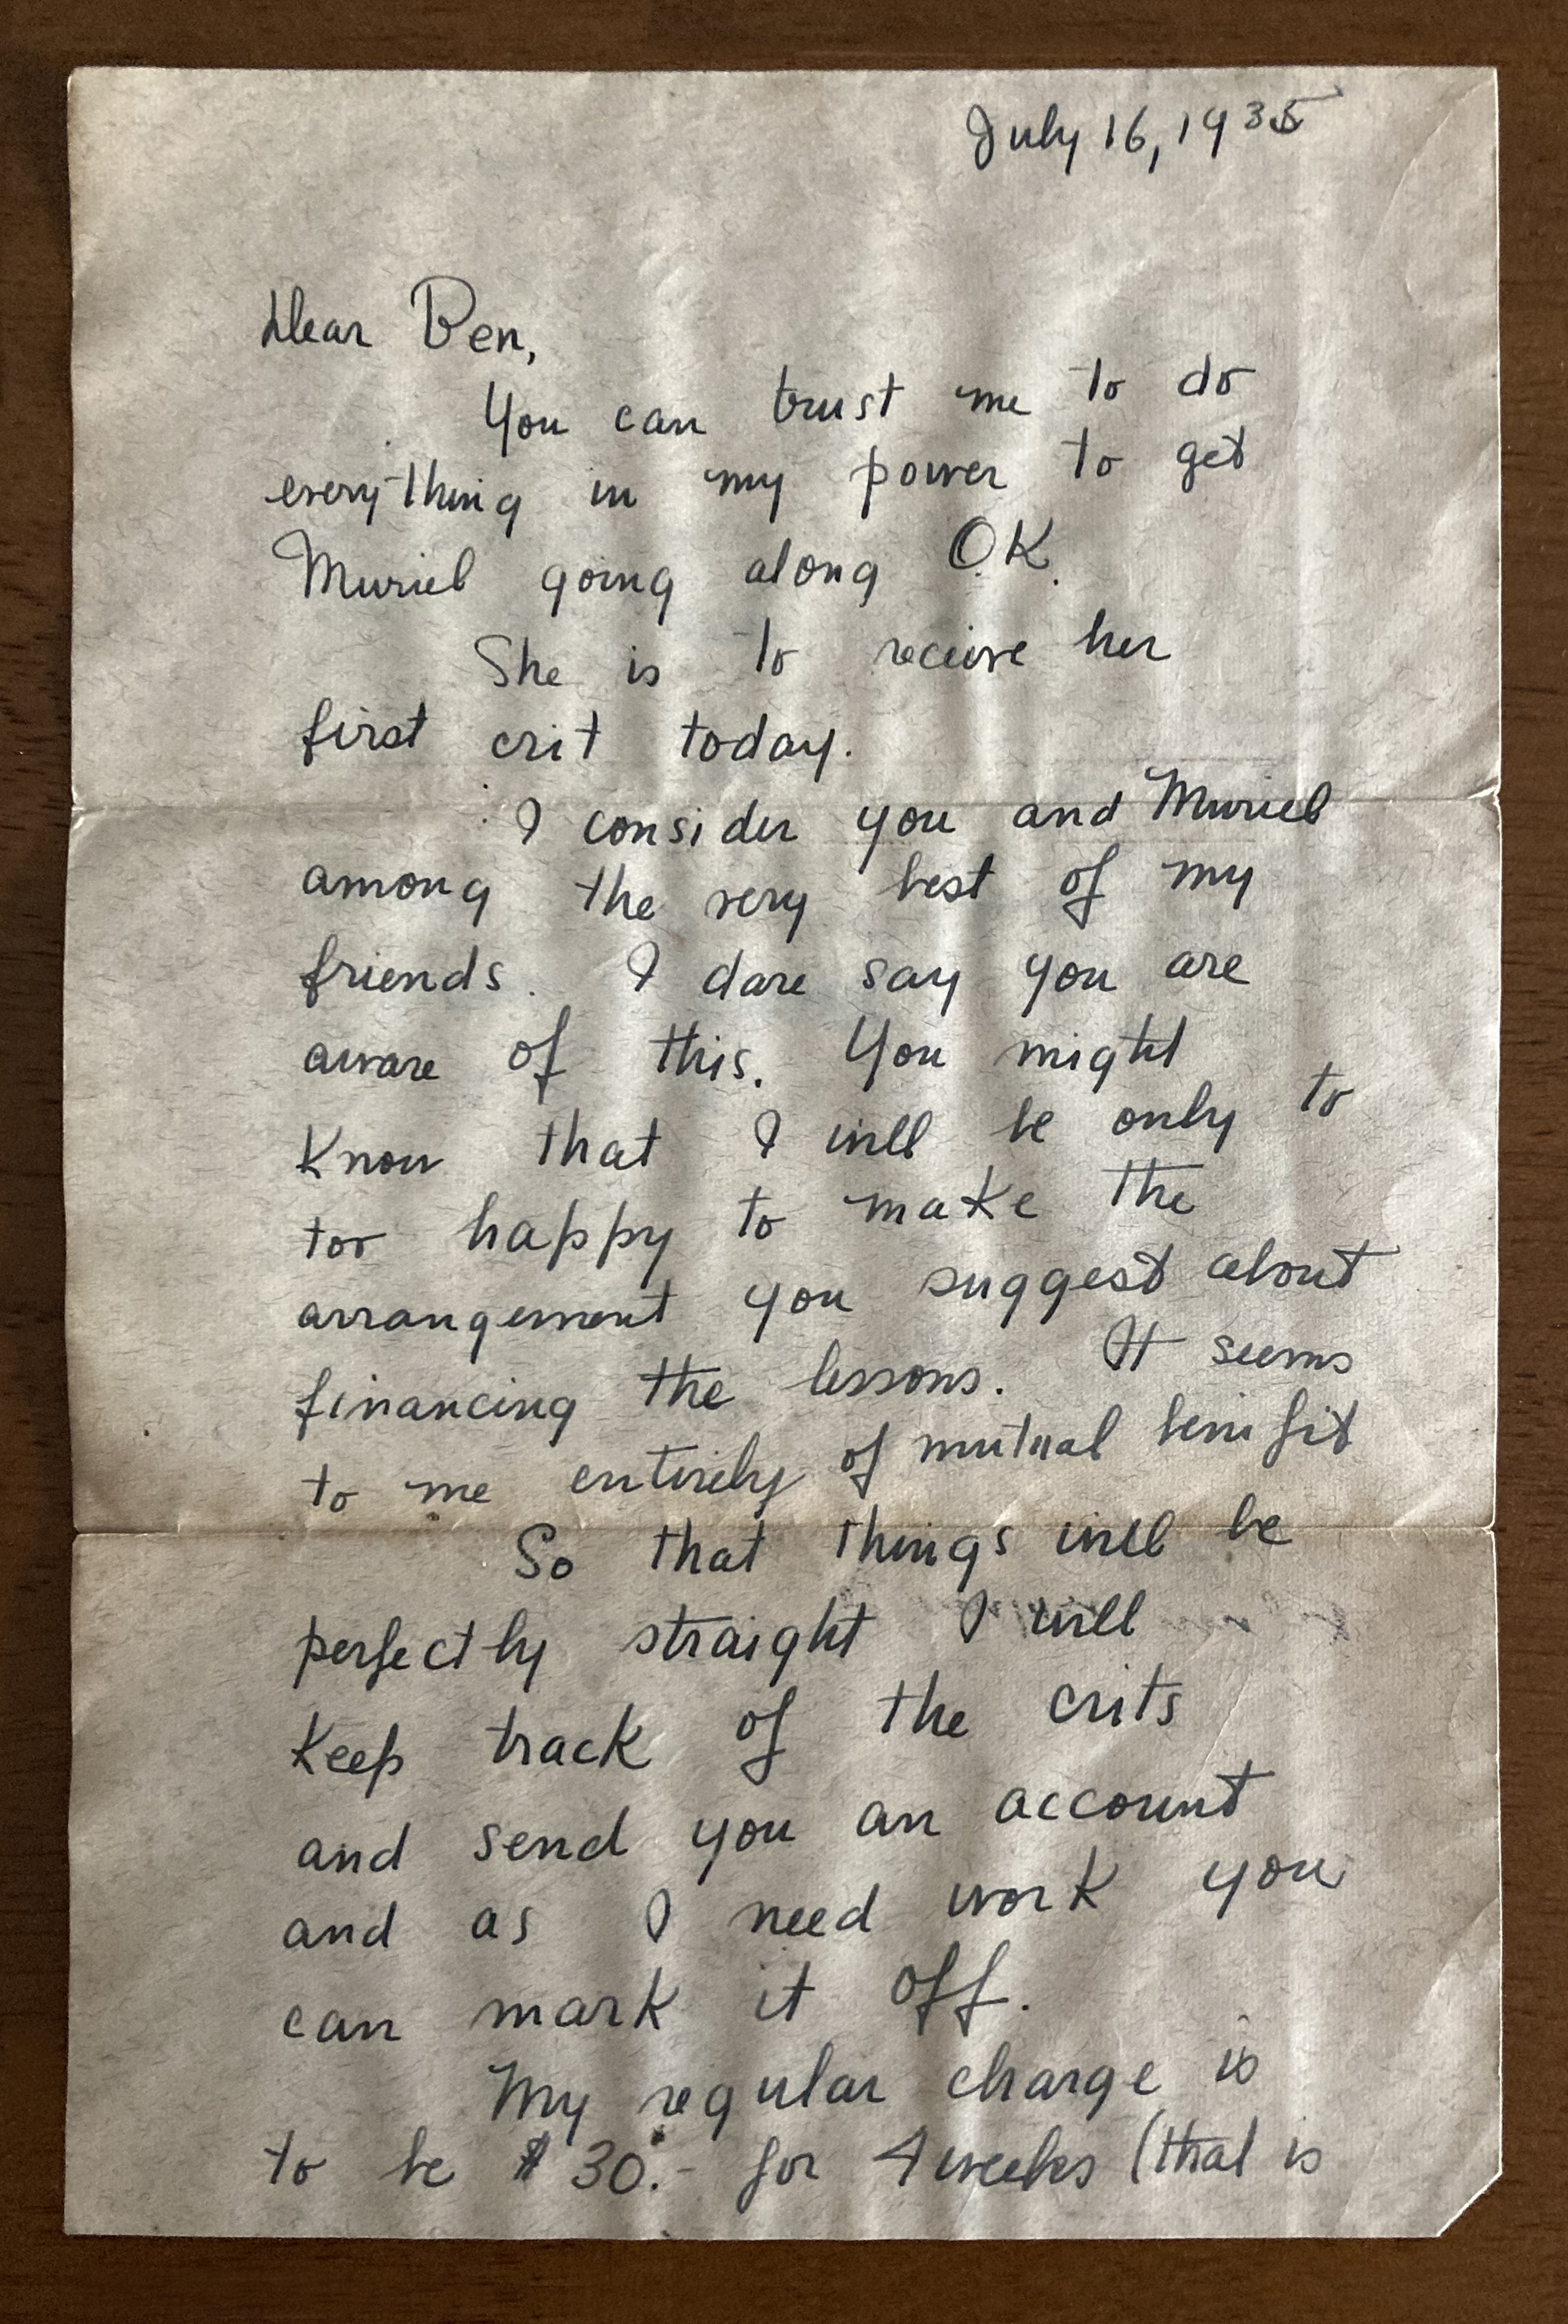 July 16, 1935
Dear Ben,
You can trust me to do
everything in my power to get
Muriel going along O.K.
She is to recieve her
first crit today.
I consider you and Muriel
among the very best of my
friends. I dare say you are
aware of this. You might
know that I will be only to
too happy to make the
arrangement you suggest about
financing the lessons. It seems
to me entirely of mutual benifit
So that things will be
perfectly straight I will
keep track of the crits
and send you an account
and as I need work you
can mark it off.
My regular charge is
to be $30.- for 4 weeks (that is